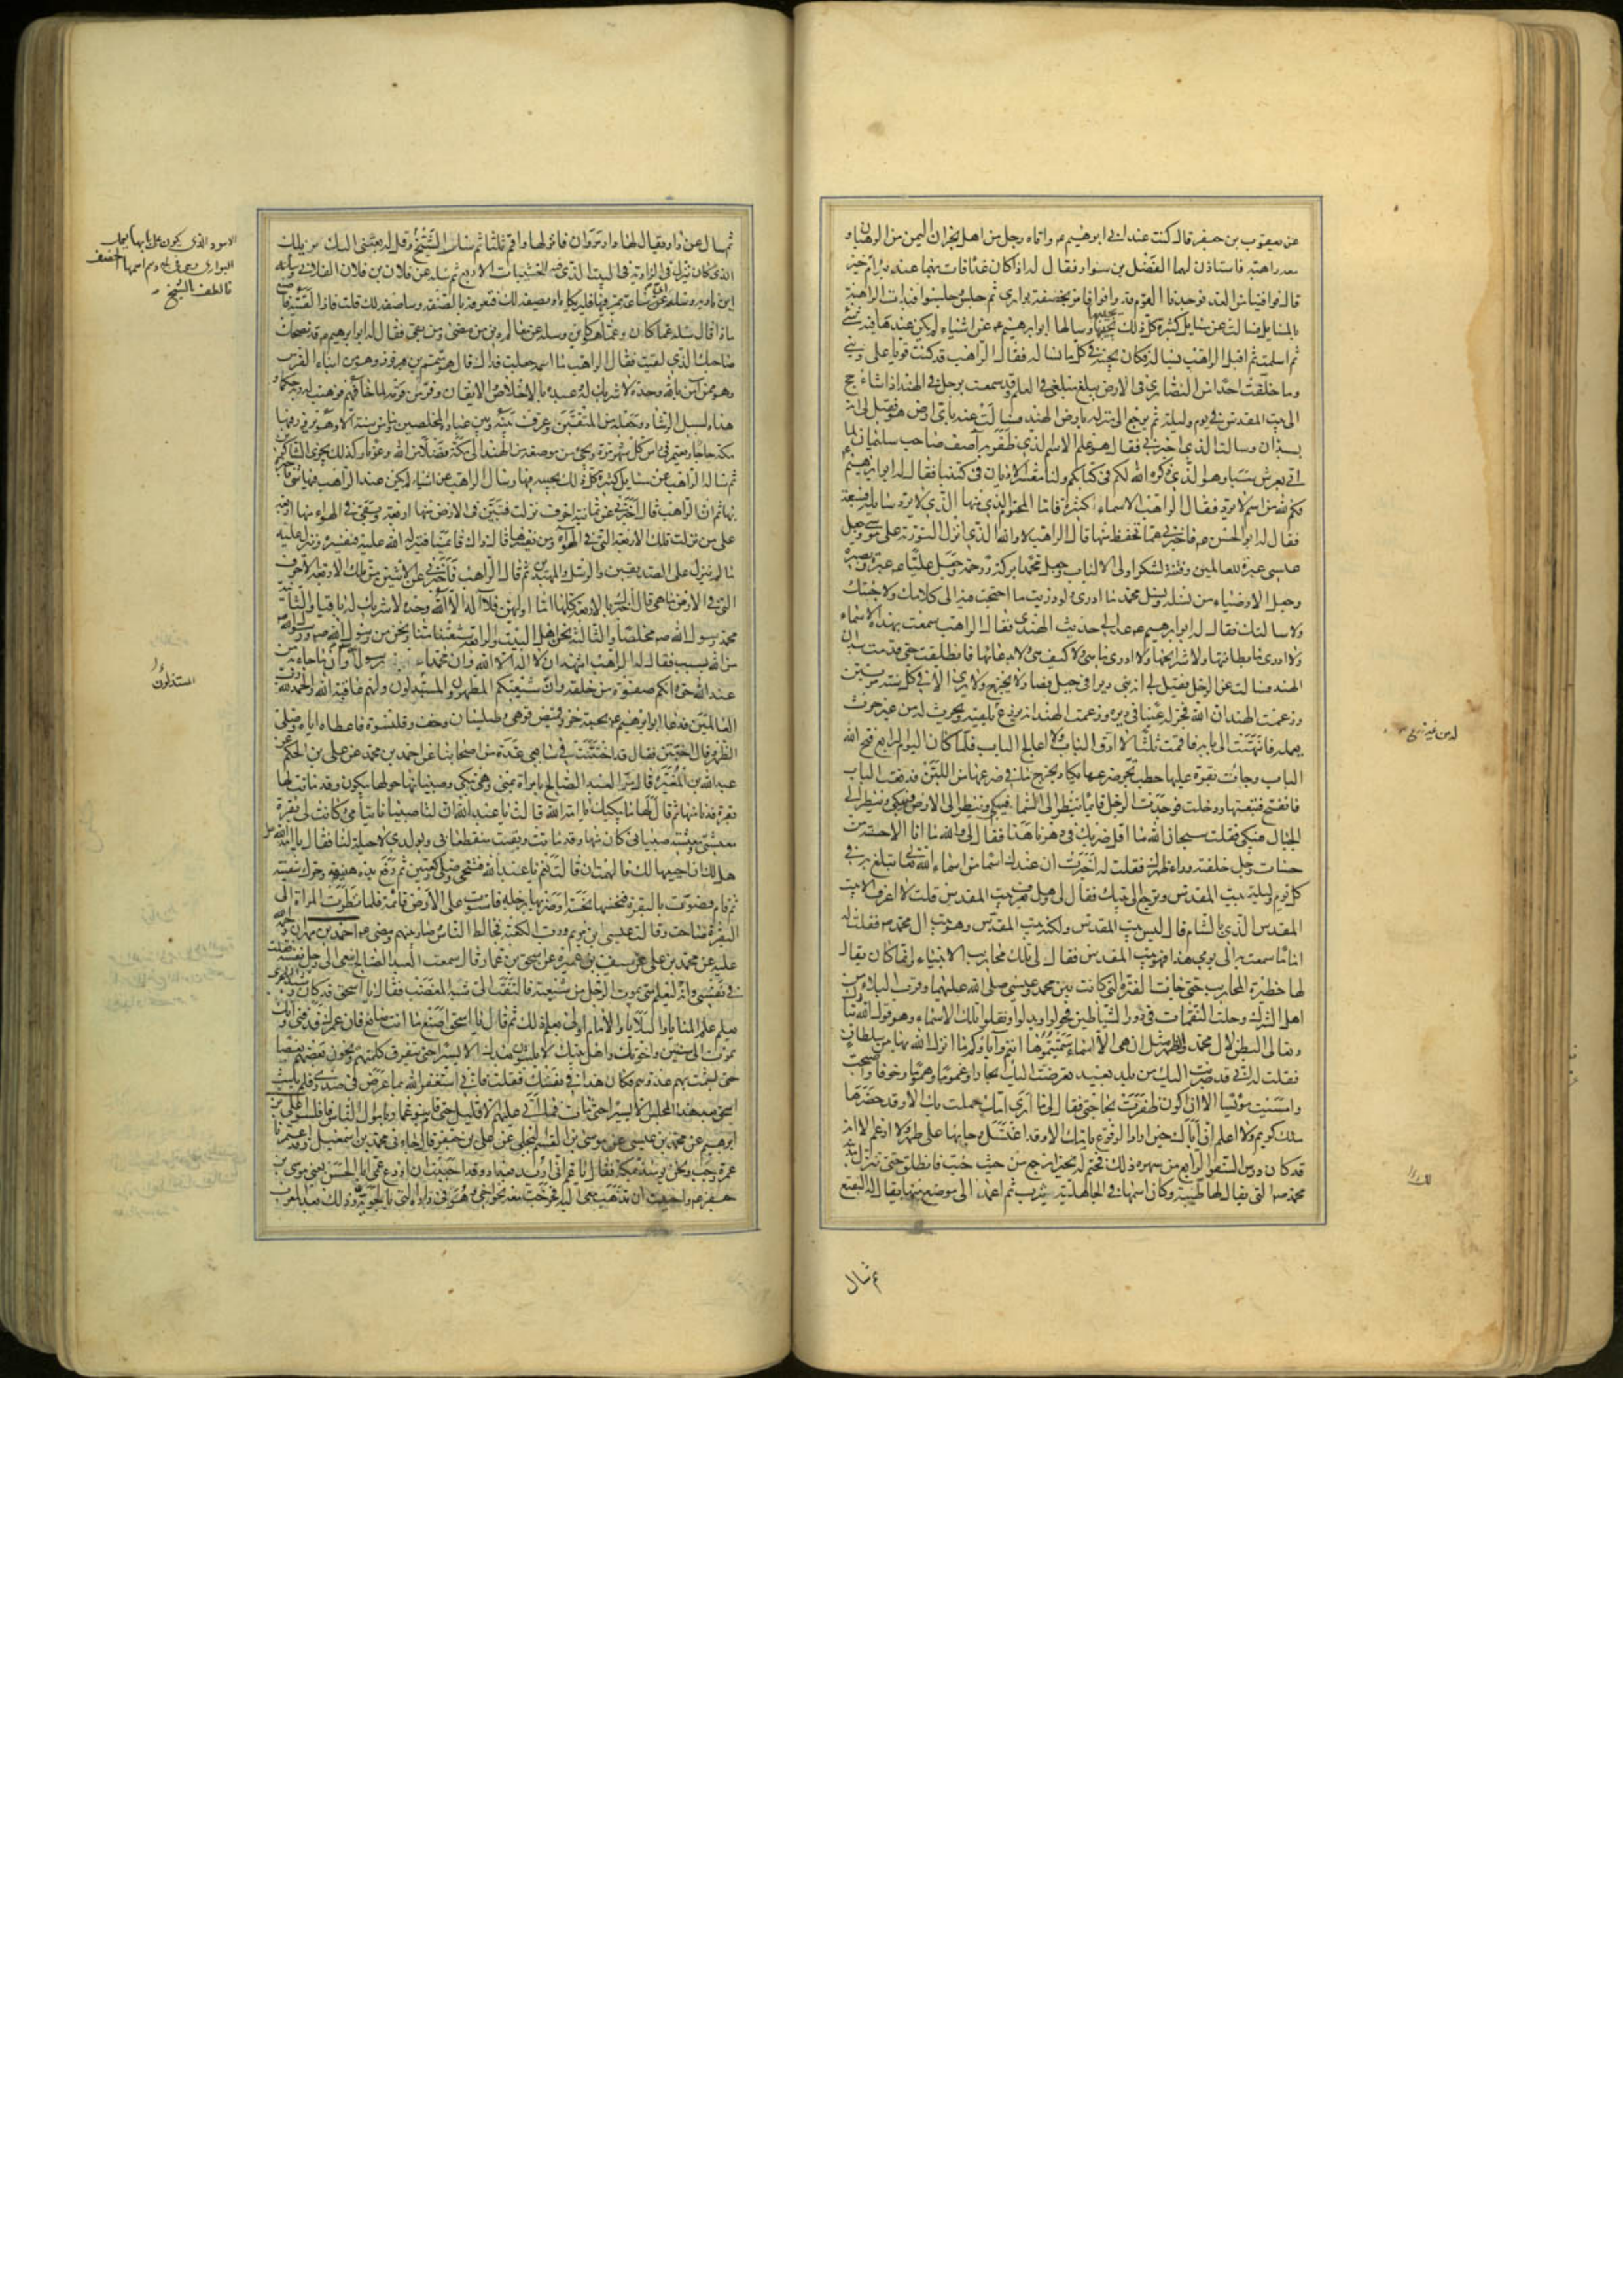 عن يعقوب بن جعفر قال كنت عند ابي ابرهيم ع واتاه رجل من اهل نجران اليمن من الرهبان و
معه راهبة فاستاذن لهما الفضل بن سوار فقال له اذا كان غدا فات بهما عند بئر ام خير
قال فوافينا من الغد فوجدنا القوم قد وافوا فامر بخصفة بواري ثم جلس وجلسوا فبدات الراهبة
بالمسايل فسالت عن مسايل كثيرة كل ذلك يجيبها وسالها ابو ابرهيم ع عن اشياء لم يكن عندها فيه شئ
ثم اسلمت ثم اقبل الراهب يساله فكان يجيبه في كل ما يساله فقال الراهب قد كنت قويا على ديني
وما خلفت احدا من النصارى في الارض يبلغ مبلغي في العلم ولقد سمعت برجل في الهند اذا شاء حج
الى بيت المقدس في يوم وليلة ثم يرجع الى منزله بارض الهند فسالت عنه باي ارض هو فقيل لي انه
بسبذان وسالت الذي اخبرني فقال هو علم الاسم الذي ظفر به اصف صاحب سليمان لما
اتى بعرش سبا وهو الذي ذكره الله لكم في كتابكم ولنا معشر الاديان في كتبنا فقال له ابو ابرهيم ع
فكم لله من اسم لا يرد فقال الراهب الاسماء كثيرة فاما المحتوم منها الذي لا يرد سايله فسبعة
فقال له ابو الحسن ع فاخبرني عما تحفظ منها قال الراهب لا والله الذي انزل التورية على موسى وجعل
عيسى عبرة للعالمين وفتنة لشكر اولي الالباب وجعل محمدا بركة ورحمة وجعل عليا ع عبرة وبصيرة
وجعل الاوصياء من نسله ونسل محمد ما ادري ولو دريت ما احتجت فيه الى كلامك ولا جئتك
ولا سالتك فقال له ابو ابرهيم ع عد الى حديث الهندي فقال الراهب سمعت بهذه الاسماء
ولا ادري ما بطانتها ولا شرايحها ولا ادري ما هي ولا كيف هي ولا بدعائها فانطلقت حتى قدمت سبذان
الهند فسالت عن الرجل فقيل لي انه بنى ديرا في جبل فصار لا يخرج ولا يرى الا في كل سنة مرتين
وزعمت الهند ان الله فجر له عينا في ديره وزعمت الهند انه يزرع له من غير زرع يلقيه ويحرث له من غير حرث
يعمله فانتهيت الى بابه فاقمت ثلثا لا ادق الباب ولا اعالج الباب فلما كان اليوم الرابع فتح الله
الباب وجائت بقرة عليها حطب تجر ضرعها يكاد يخرج ما في ضرعها من اللبن فدفعت الباب
فانفتح فتبعتها ودخلت فوجدت الرجل قائما ينظر الى السماء فيبكي وينظر الى الارض فيبكي وينظر الى
الجبال فيبكي فقلت سبحان الله ما اقل ضربك في دهرنا هذا فقال لي والله ما انا الا حسنة من
حسنات رجل خلفته وراء ظهرك فقلت له اخبرت ان عندك اسما من اسماء الله تعالى تبلغ به في
كل يوم وليلة بيت المقدس وترجع الى بيتك فقال لي وهل تعرف بيت المقدس قلت لا اعرف الا بيت
المقدس الذي بالشام قال ليس بيت المقدس ولكنه بيت المقدس وهو بيت ال محمد ص فقلت له
اما ما سمعت به الى يومي هذا فهو بيت المقدس فقال لي تلك محاريب الانبياء وانما كان يقال
لها حظيرة المحاريب حتى جائت الفترة التي كانت بين محمد وعيسى صلى الله عليهما وقرب البلاء من
اهل الشرك وحلت النقمات في دور الشياطين فحولوا وبدلوا ونقلوا تلك الاسماء وهو قول الله تبارك
وتعالى البطن لال محمد والظهر مثل ان هي الا اسماء سميتموها انتم واباؤكم ما انزل الله بها من سلطان
فقلت له اني قد ضربت اليك من بلد بعيد تعرضت اليك بحارا وغموما وهموما وخوفا واصبحت
وامسيت مؤيسا الا اكون ظفرت بحاجتي فقال لي ما ارى امك حملت بك الا وقد حضرها
ملك كريم ولا اعلم ان اباك حين اراد الوقوع بامك الا وقد اغتسل وجاءها على طهر ولا ازعم الا انه
قد كان درس السفر الرابع من سهره ذلك فختم له بخير ارجع من حيث جئت فانطلق حتى تنزل مدينة
محمد ص التي يقال لها طيبة وكان اسمها في الجاهلية يثرب ثم اعمد الى موضع منها يقال له البقيع
ثم سال
له من غير زرع
ثم سال عن دار يقال لها دار مروان فانزلها واقم ثلثا ثم سل الشيخ وقل له بعثني اليك نزيلك
الذي كان ينزل في الزاوية في البيت الذي فيه الخشيبات الاربع ثم سله عن فلان بن فلان الفلاني وساله
اين ناديه وسله اي ساعة يمر فيها فليريكاه او يصفه لك فتعرفه بالصفة وساصفه لك قلت فاذا لقيته فاصنع
ماذا قال سله عما كان وعما هو كاين وسله عن معالم دين من مضى ومن بقي فقال له ابو ابرهيم ع قد نصحك
صاحبك الذي لقيت فقال الراهب ما اسمه جعلت فداك قال هو متمم بن فيروز وهو من ابناء الفرس
وهو ممن امن بالله وحده لا شريك له وعبده بالاخلاص والايقان وفر من قومه لما خافهم فوهب له ربه حكما و
هداه لسبيل الرشاد وجعله من المتقين وعرف بينه وبين عباده المخلصين وما من سنة الا وهو يزور فيها
مكة حاجا ويعتمر في راس كل شهر مرة ويجئ من موضعه من الهند الى مكة فضلا من الله وعونا وكذلك يجزي الشاكرين
ثم ساله الراهب عن مسايل كثيرة كل ذلك يجيبه فيها وسال الراهب عن اشياء لم يكن عند الراهب فيها شئ فاخبره
بها ثم ان الراهب قال اخبرني عن ثمانية احرف نزلت فتبين في الارض منها اربعة وبقي في الهواء منها اربعة
على من نزلت تلك الاربعة التي في الهواء ومن يفسرها قال ذاك قائمنا فينزله الله عليه فيفسره وينزل عليه
ما لم ينزل على الصديقين والرسل والمهتدين ثم قال الراهب فاخبرني عن الاثنين من تلك الاربعة الاحرف
التي في الارض ما هي قال اخبرك بالاربعة كلها اما اولهن فلا اله الا الله وحده لا شريك له باقيا والثانية
محمد رسول الله ص مخلصا والثالثة نحن اهل البيت والرابعة شيعتنا منا ونحن من رسول الله ص ورسول الله
من الله بسبب فقال له الراهب اشهد ان لا اله الا الله وان محمدا رسول الله وان ما جاء به من
عند الله حق وانكم صفوة من خلقه وان شيعتكم المطهرون المستبدلون ولهم عاقبة الله والحمد لله رب
العالمين فدعا ابو ابرهيم ع بجبة خز وقميص قوهي وطيلسان وخف وقلنسوة فاعطاه اياه وصلى
الظهر وقال له اختتن فقال قد اختتنت في سابعي عدة من اصحابنا عن احمد بن محمد عن علي بن الحكم عن
عبد الله بن المغيرة قال مر العبد الصالح بامراة بمنى وهي تبكي وصبيانها حولها يبكون وقد ماتت لها
بقرة فدنا منها ثم قال لها ما يبكيك يا امة الله قالت يا عبد الله ان لنا صبيانا يتامى وكانت لي بقرة
معيشتي ومعيشة صبياني كان منها وقد ماتت وبقيت منقطعا بي وبولدي لا حيلة لنا فقال يا امة الله
هل لك ان احييها لك فالهمت ان قالت نعم يا عبد الله فتنحى وصلى ركعتين ثم رفع يده هنيئة وحرك شفتيه
ثم قام فصوت بالبقرة فنخسها نخسة او ضربها برجله فاستوت على الارض قائمة فلما نظرت المراة الى
البقرة صاحت وقالت عيسى ابن مريم ورب الكعبة فخالط الناس وصار بينهم ومضى ع احمد بن مهران رحمه الله
عليه عن محمد بن علي عن سيف بن عميرة عن اسحق بن عمار قال سمعت العبد الصالح ينعى الى رجل نفسه فقلت
في نفسي وانه ليعلم متى يموت الرجل من شيعته فالتفت الي شبه المغضب فقال يا اسحق قد كان رشيد الهجري
يعلم علم المنايا والبلايا والامام اولى بعلم ذلك ثم قال يا اسحق اصنع ما انت صانع فان عمرك قد فنى وانك
تموت الى سنتين واخوتك واهل بيتك لا يلبثون بعدك الا يسيرا حتى تتفرق كلمتهم ويخون بعضهم بعضا
حتى يشمت بهم عدوهم فكان هذا في نفسك فقلت فاني استغفر الله بما عرض في صدري فلم يلبث
اسحق بعد هذا المجلس الا يسيرا حتى مات فما اتى عليهم الا قليل حتى قام بنو عمار باموال الناس فافلسوا علي بن
ابرهيم عن محمد بن عيسى عن موسى بن القاسم البجلي عن علي بن جعفر قال جاءني محمد بن اسمعيل وقد اعتمرنا
عمرة رجب ونحن يومئذ بمكة فقال يا عم اني اريد بغداد وقد احببت ان اودع عمي ابا الحسن يعني موسى بن
جعفر ع واحببت ان تذهب معي اليه فخرجت معه نحو اخي وهو في داره التي بالحوبة وذلك بعد المغرب
الاسود الذي يكون على بابها يعمل
البواري وهي في بلادهم اسمها الخصف
فالطف بالشيخ و
المستذلون